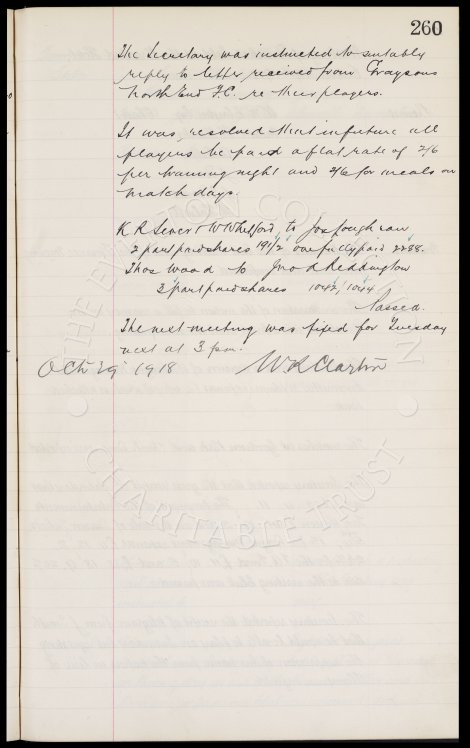 260
The Secretary was instructed to suitably
reply to letter received from Graysons
North End F.C. re their players.
It was, resolved that in future all
players be paid a flat rate of 2/6
per training night and 2/6 for meals on
match days.
K R Lever & W Whelford, to Jos
2 part paid shares 191/2 one fully paid 2238.
Thos Wood to Jno A Reddington
3 part paid shares 1042/1044
Passed.
The next meeting was fixed for Tuesday
next at 3 pm.
Oct 29 1918 W R Clayton
THE EVERTON
CHARITABLE TRUST